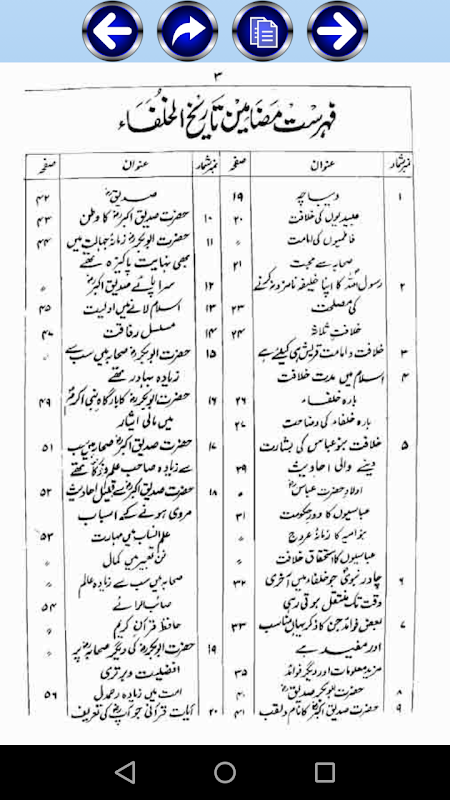 ۳
فہرست مضامین تاریخ الخلفاء
نمبر شمار عنوان صفحہ
۱ دیباچہ ۱۹
عبیدیوں کی خلافت ۲۰
فاطمیوں کی امامت 〃
صحابہ سے محبت ۲۱
۲ رسول اللہ کا اپنا خلیفہ نامزد نہ کرنے
کی مصلحت ۲۳
خلافت ثلاثہ ۲۴
۳ خلافت و امامت قریش ہی کیلئے ہے
۴ اسلام میں مدت خلافت
بارہ خلفاء ۲۶
بارہ خلفاء کی وضاحت ۲۷
۵ خلافت بنو عباس کی بشارت
دینے والی احادیث ۲۹
اولاد حضرت عباسؓ
عباسیوں کا دور حکومت ۳۱
بنو امیہ کا زمانۂ عروج 〃
عباسیوں کا استحقاق خلافت 〃
۶ چادر نبویؐ جو خلفاء میں آخری ۳۲
وقت تک منتقل ہوتی رہی
۷ بعض فوائد جن کا ذکر یہاں مناسب ۳۳
اور مفید ہے
مزید معلومات اور دیگر فوائد ۳۵
۸ حضرت ابوبکر صدیقؓ ۴۰
۹ حضرت صدیق اکبرؓ کا نام و لقب ۴۱
نمبر شمار عنوان صفحہ
صدیقؓ ۴۲
۱۰ حضرت صدیق اکبرؓ کا وطن ۴۳
۱۱ حضرت ابوبکرؓ زمانۂ جہالت میں ۴۴
بھی نہایت پاکیزہ تھے
۱۲ سراپائے صدیق اکبرؓ 〃
۱۳ اسلام لانے میں اولیت ۴۵
۱۴ مسلسل رفاقت ۴۷
۱۵ حضرت ابوبکرؓ صحابہ میں سب سے 〃
زیادہ بہادر تھے
۱۶ حضرت ابوبکرؓ کا بارگاہ نبی اکرمؐ ۴۹
میں مالی ایثار
۱۷ حضرت صدیق اکبرؓ صحابہ میں سب ۵۱
سے زیادہ صاحب علم و ذکا تھے
۱۸ حضرت صدیق اکبرؓ سے قلیل احادیث ۵۲
مروی ہونے کے اسباب
علم الانساب میں مہارت ۵۳
فن تعبیر میں کمال 〃
صحابہ میں سب سے زیادہ عالم 〃
صائب الرائے ۵۴
حافظ قرآن کریم 〃
۱۹ حضرت ابوبکرؓ کی دیگر صحابہؓ پر 〃
افضلیت و برتری
امت میں زیادہ رحمدل ۵۶
۲۰ آیات قرآنی جو آپؓ کی تعریف